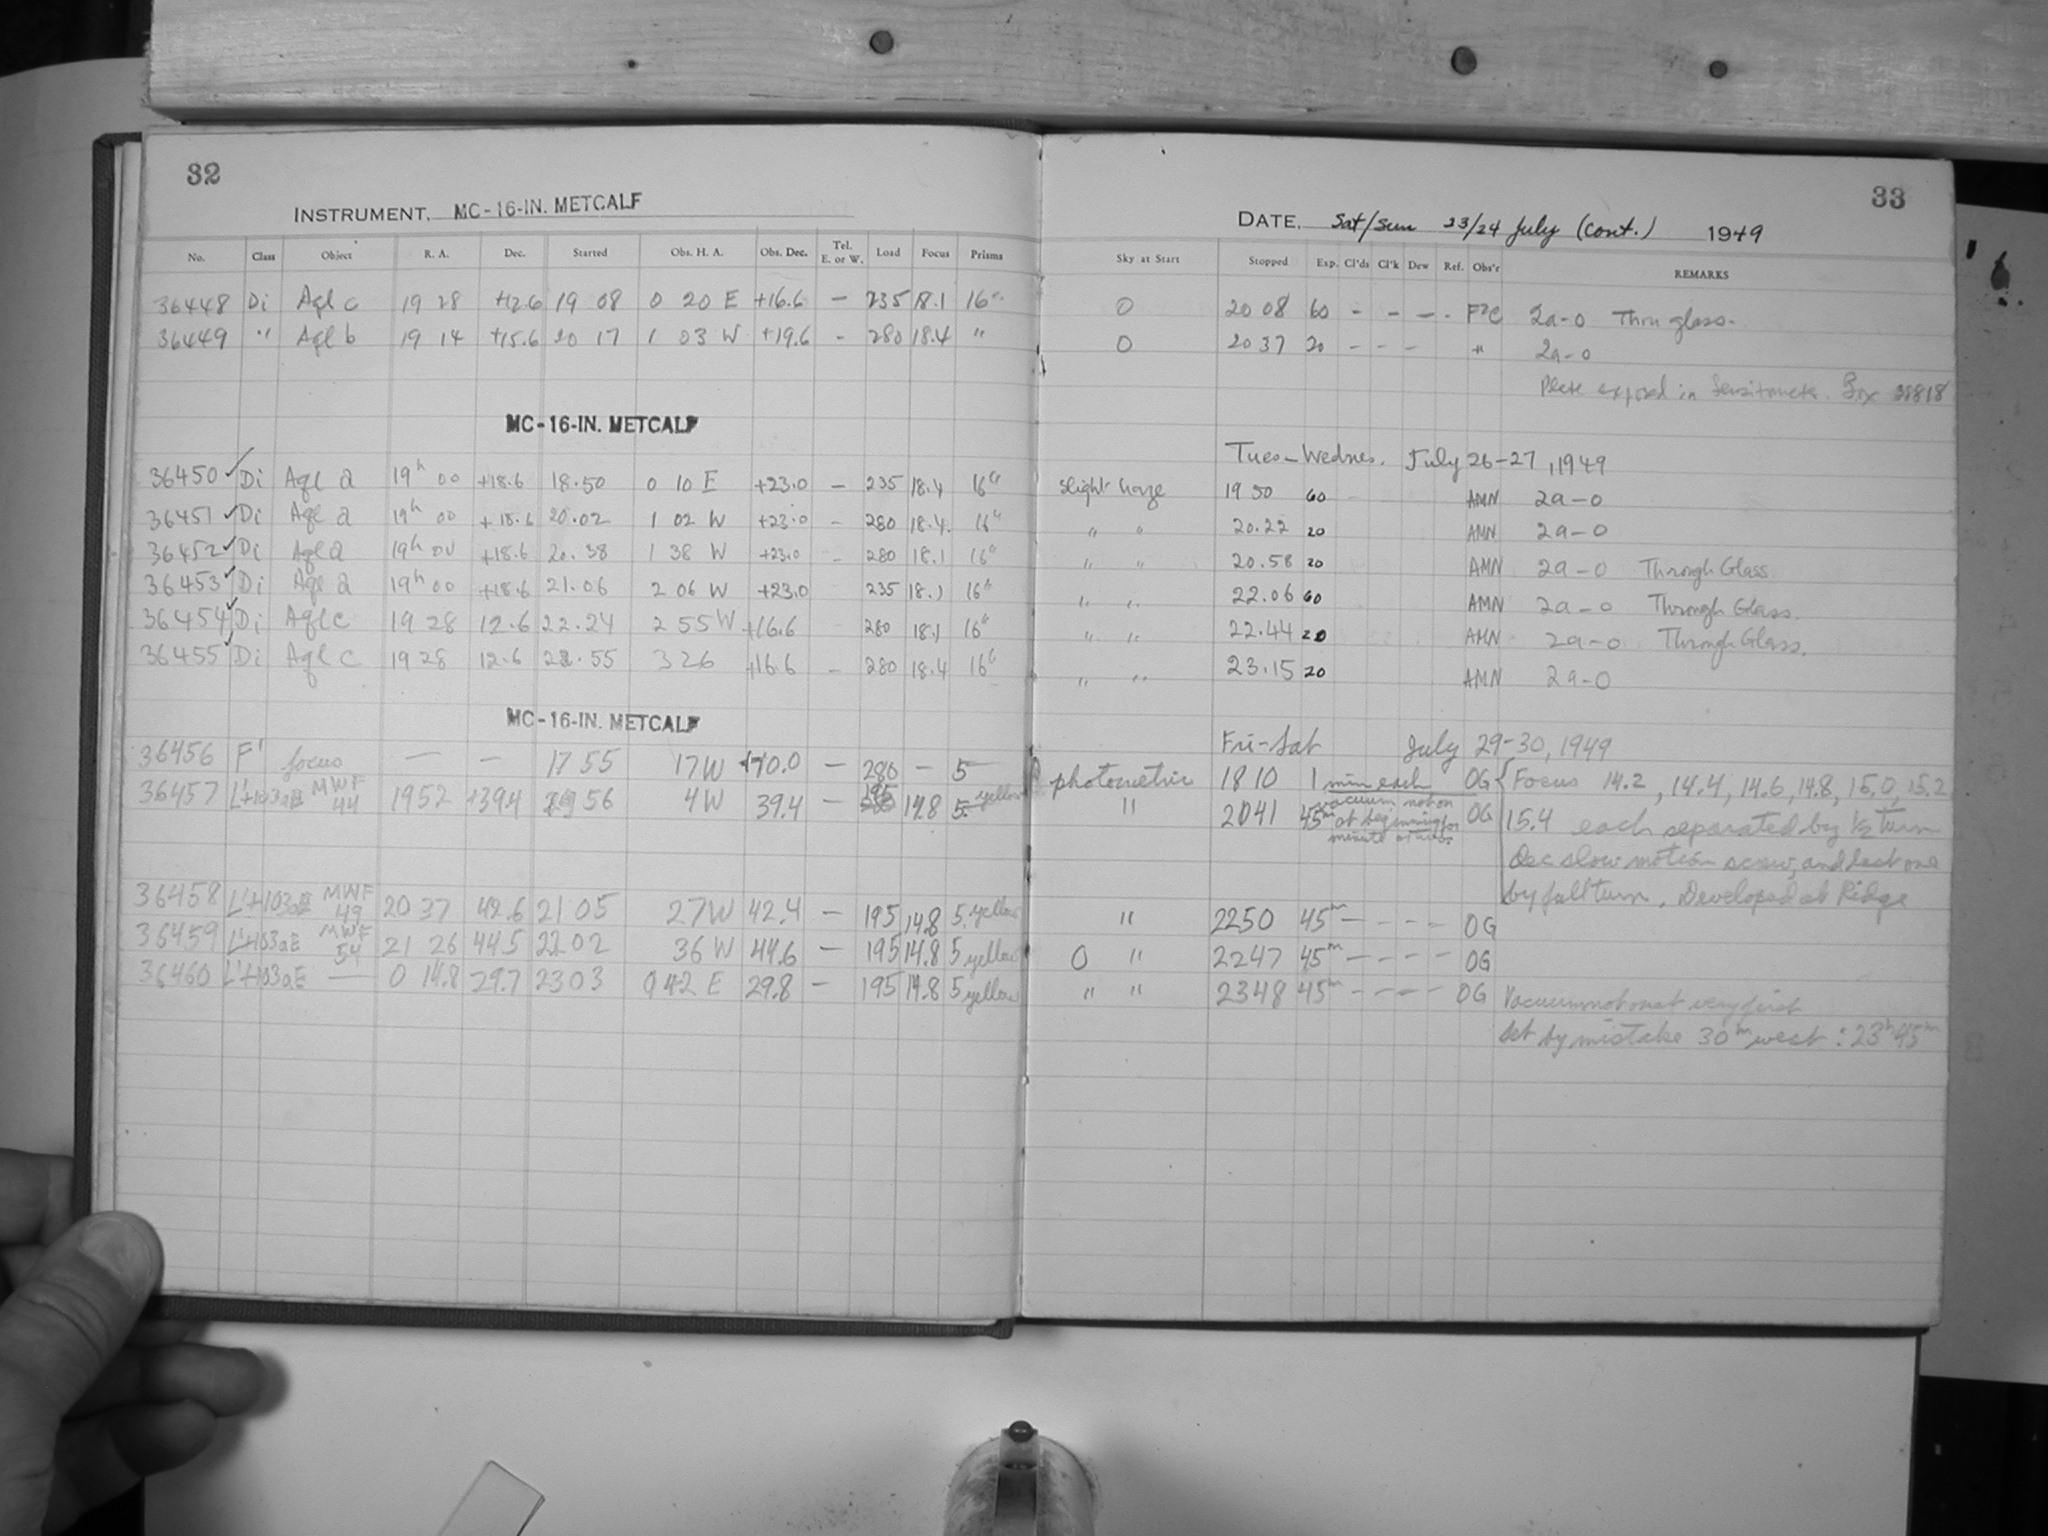 32
INSTRUMENT, MC-16-IN. METCALF
No. Class Object R. A. Dec. Started Obs. H. A. Obs. Dec. Tel. E. or W. Load Focus Prisms
36448 Di Aql c 19 28 +12.6 19 08 0 20 E +16.6 — 235 18.1 16"
36449 " Aql b 19 14 +15.6 20 17 1 03 W +19.6 - 280 18.4 "
MC-16-IN. METCALF
36450 ✓ Di Aql a 19h 00 +18.6 18.50 0 10 E +23.0 — 235 18.4 16"
36451 ✓ Di Aql a 19h 00 +18.6 20.02 1 02 W +23.0 - 280 18.4. 16"
36452 ✓ Di Aql a 19h 00 +18.6 20.38 1 38 W +23.0 - 280 18.1 16"
36453 ✓ Di Aql a 19h 00 +18.6 21.06 2 06 W +23.0 235 18.1 16"
36454 ✓ Di Aql c 19 28 12.6 22.24 2 55 W +16.6 280 18.1 16"
36455 ✓ Di Aql c 19 28 12.6 22.55 3 26 +16.6 - 280 18.4 16"
MC-16-IN. METCALF
36456 F' focus — — 17 55 17W +70.0 — 280 — 5
36457 L'+103aE MWF 44 1952 +39.4 1956 4W 39.4 — 195 14.8 5 yellow
36458 L'+103aE MWF 49 20 37 42.6 21 05 27W 42.4 — 195 14.8 5 yellow
36459 L'+103aE MWF 54 21 26 44.5 2202 36 W 44.6 — 195 14.8 5 yellow
36460 L'+103aE — 0 14.8 29.7 2303 0 42 E 29.8 — 195 14.8 5 yellow
33
DATE, Sat/Sun 23/24 July (cont.) 1949
Sky at Start Stopped Exp. Cl'ds Cl'k Dew Ref. Obs'r REMARKS
0 20 08 60 - - - - 2a-0 Thru glass.
0 20 37 20 - - - " 2a-0
Plate exposed in Sensitometer. Box
Tues-Wednes. July 26-27, 1949
Slight haze 19 50 60 AMN 2a-0
" " 20.22 20 AMN 2a-0
" " 20.58 20 AMN 2a-0 Through Glass.
" " 22.06 60 AMN 2a-0 Through Glass.
" " 22.44 20 AMN 2a-0 Through Glass.
" " 23.15 20 AMN 2a-0
Fri-Sat July 29-30, 1949
photometric 1810 1 min each OG Focus 14.2, 14.4, 14.6, 14.8, 15.0, 15.2
" 2041 45m vacuum not on at beginning for minute or two. OG 15.4 each separated by 1/2 turn
Dec slow motion screw, and last one
by full turn. Developed at Ridge
" 2250 45m — - - - OG
0 " 2247 45m — - - - OG
" " 2348 45m — - - - OG Vacuum not on at very first
Set by mistake 30m west: 23h45m